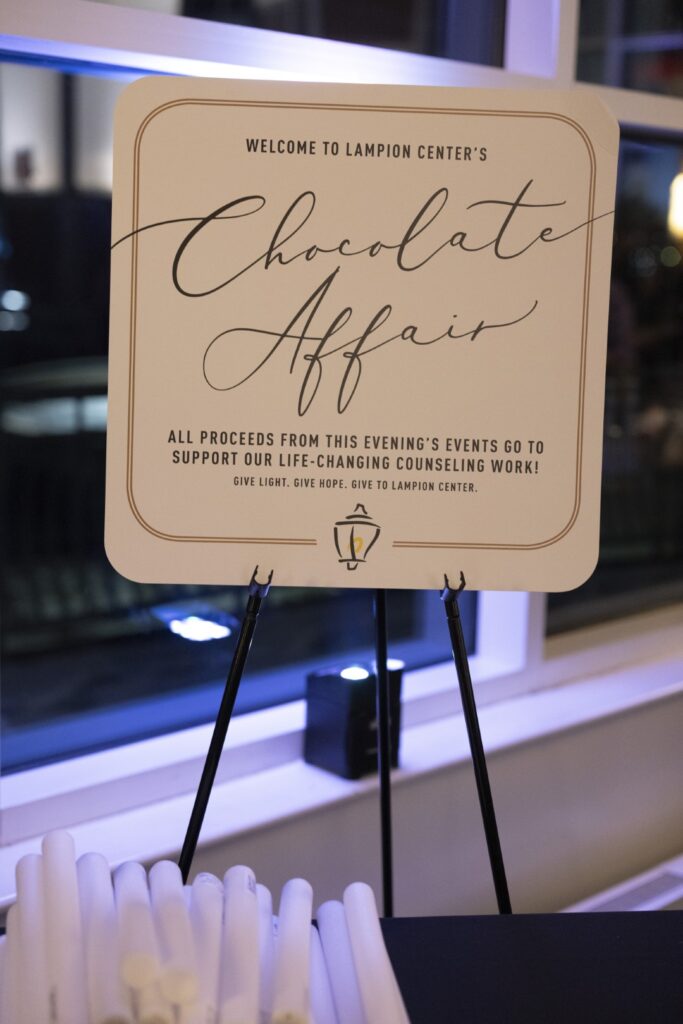 WELCOME TO LAMPION CENTER'S
Chocolate
Affair
ALL PROCEEDS FROM THIS EVENING'S EVENTS GO TO
SUPPORT OUR LIFE-CHANGING COUNSELING WORK!
GIVE LIGHT. GIVE HOPE. GIVE TO LAMPION CENTER.